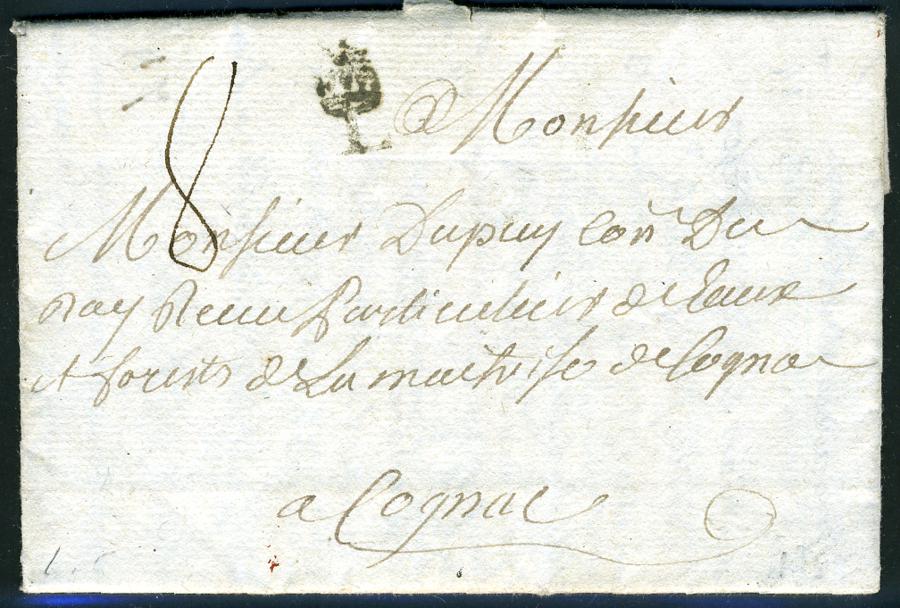 8
L
A Monsieur
Monsieur Dupuy Con Du
Roy Receu particulier de Eaux
et forests de La maitrise de Cognac
a Cognac